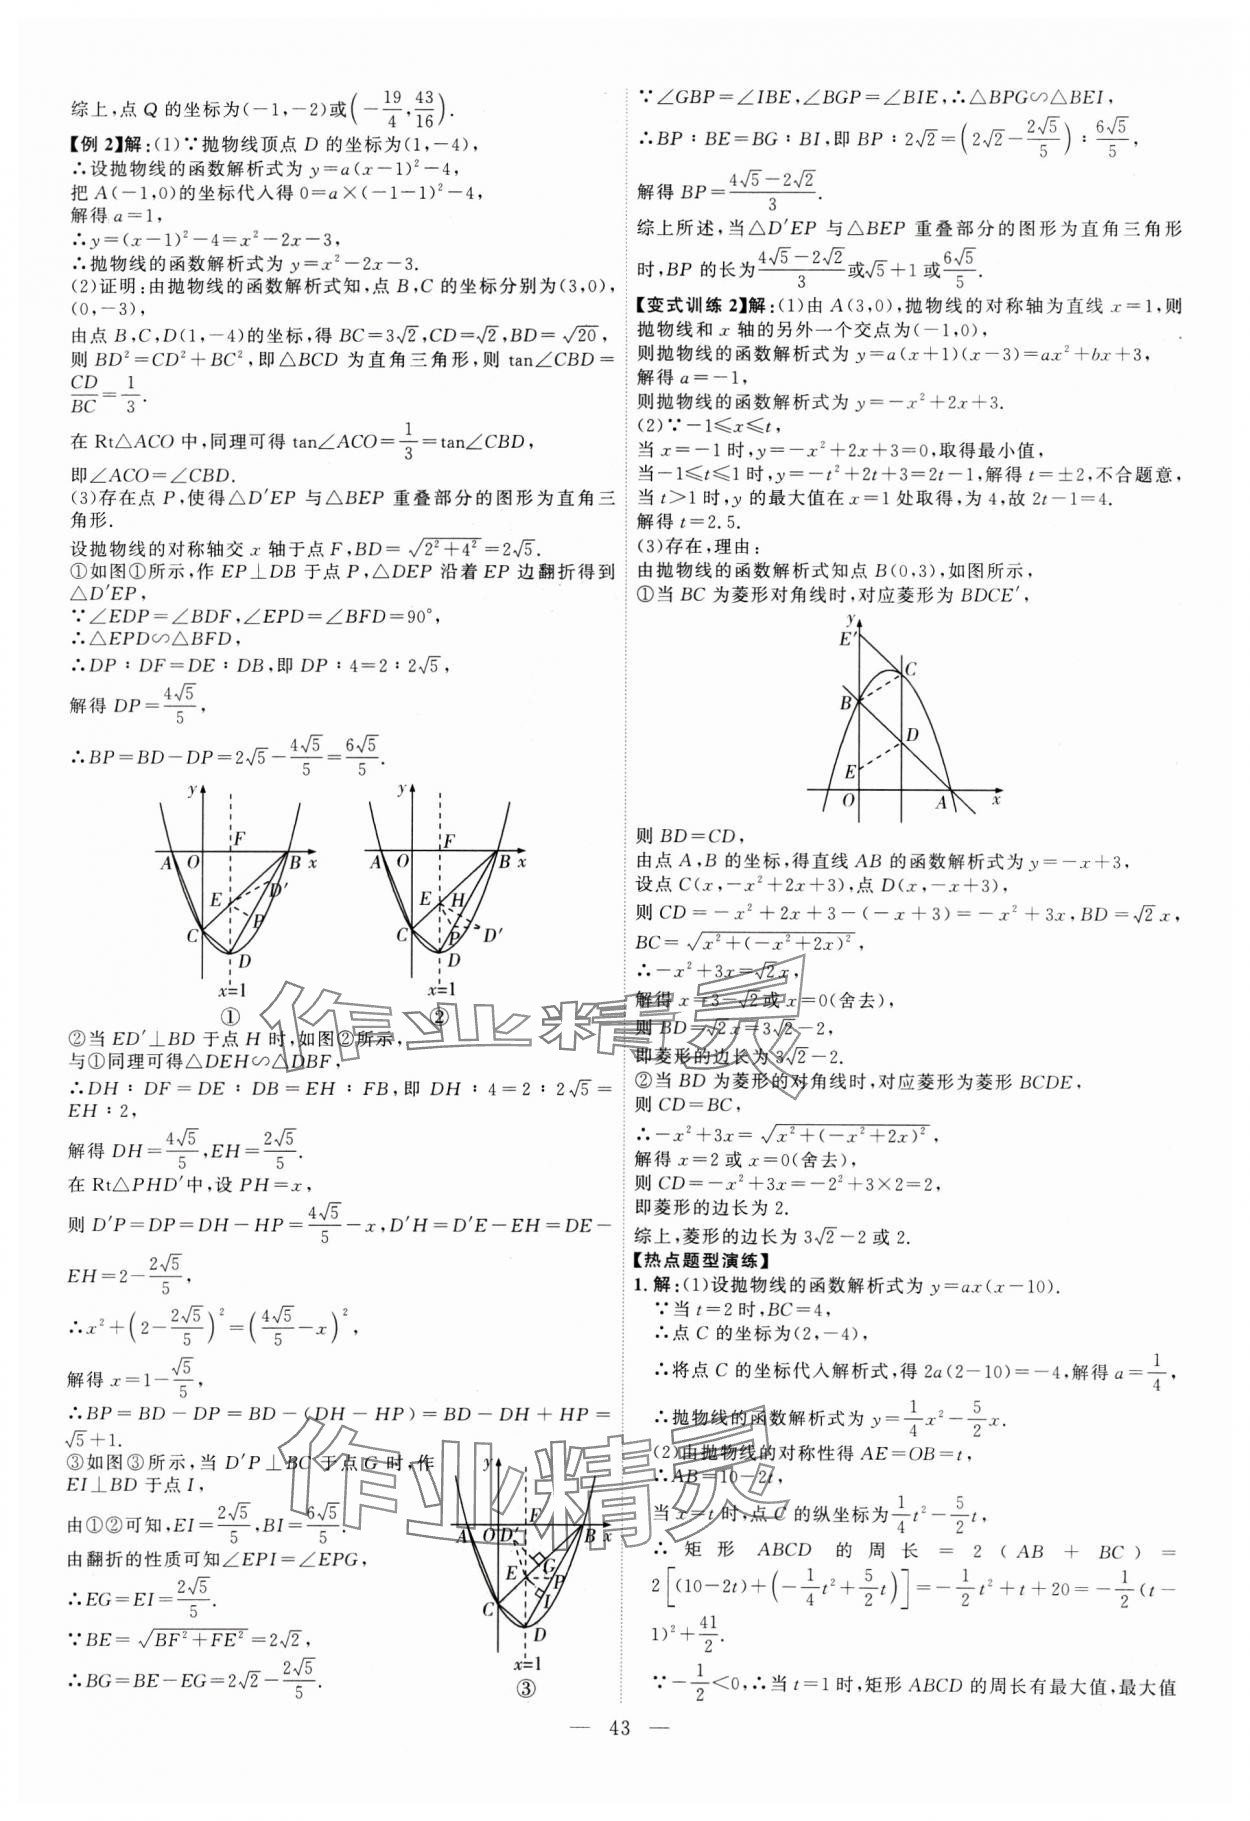 综上,点 Q 的坐标为(-1,-2)或(-19/4, 43/16).
【例 2】解:(1)∵抛物线顶点 D 的坐标为(1,-4),
∴设抛物线的函数解析式为 y=a(x-1)²-4,
把 A(-1,0)的坐标代入得 0=a×(-1-1)²-4,
解得 a=1,
∴y=(x-1)²-4=x²-2x-3,
∴抛物线的函数解析式为 y=x²-2x-3.
(2)证明:由抛物线的函数解析式知,点 B,C 的坐标分别为(3,0),
(0,-3),
由点 B,C,D(1,-4)的坐标,得 BC=3√2,CD=√2,BD=√20,
则 BD²=CD²+BC²,即△BCD 为直角三角形,则 tan∠CBD=
CD/BC=1/3.
在 Rt△ACO 中,同理可得 tan∠ACO=1/3=tan∠CBD,
即∠ACO=∠CBD.
(3)存在点 P,使得△D′EP 与△BEP 重叠部分的图形为直角三
角形.
设抛物线的对称轴交 x 轴于点 F,BD=√(2²+4²)=2√5.
①如图①所示,作 EP⊥DB 于点 P,△DEP 沿着 EP 边翻折得到
△D′EP,
∵∠EDP=∠BDF,∠EPD=∠BFD=90°,
∴△EPD∽△BFD,
∴DP∶DF=DE∶DB,即 DP∶4=2∶2√5,
解得 DP=4√5/5,
∴BP=BD-DP=2√5-4√5/5=6√5/5.
y F A O B x E D′ P C D x=1 ①
y F A O B x E H P D′ C D x=1 ②
②当 ED′⊥BD 于点 H 时,如图②所示,
与①同理可得△DEH∽△DBF,
∴DH∶DF=DE∶DB=EH∶FB,即 DH∶4=2∶2√5=
EH∶2,
解得 DH=4√5/5,EH=2√5/5.
在 Rt△PHD′中,设 PH=x,
则 D′P=DP=DH-HP=4√5/5-x,D′H=D′E-EH=DE-
EH=2-2√5/5,
∴x²+(2-2√5/5)²=(4√5/5-x)²,
解得 x=1-√5/5,
∴BP=BD-DP=BD-(DH-HP)=BD-DH+HP=
√5+1.
③如图③所示,当 D′P⊥BC 于点 G 时,作
EI⊥BD 于点 I,
由①②可知,EI=2√5/5,BI=6√5/5.
由翻折的性质可知∠EPI=∠EPG,
∴EG=EI=2√5/5.
∵BE=√(BF²+FE²)=2√2,
∴BG=BE-EG=2√2-2√5/5.
y F A O D′ B x G E P I C D x=1 ③
∵∠GBP=∠IBE,∠BGP=∠BIE,∴△BPG∽△BEI,
∴BP∶BE=BG∶BI,即 BP∶2√2=(2√2-2√5/5)∶6√5/5,
解得 BP=(4√5-2√2)/3.
综上所述,当△D′EP 与△BEP 重叠部分的图形为直角三角形
时,BP 的长为(4√5-2√2)/3或√5+1或6√5/5.
【变式训练 2】解:(1)由 A(3,0),抛物线的对称轴为直线 x=1,则
抛物线和 x 轴的另外一个交点为(-1,0),
则抛物线的函数解析式为 y=a(x+1)(x-3)=ax²+bx+3,
解得 a=-1,
则抛物线的函数解析式为 y=-x²+2x+3.
(2)∵-1≤x≤t,
当 x=-1 时,y=-x²+2x+3=0,取得最小值,
当-1≤t≤1 时,y=-t²+2t+3=2t-1,解得 t=±2,不合题意,
当 t>1 时,y 的最大值在 x=1 处取得,为 4,故 2t-1=4.
解得 t=2.5.
(3)存在,理由:
由抛物线的函数解析式知点 B(0,3),如图所示,
①当 BC 为菱形对角线时,对应菱形为 BDCE′,
y E′ C B D E O A x
则 BD=CD,
由点 A,B 的坐标,得直线 AB 的函数解析式为 y=-x+3,
设点 C(x,-x²+2x+3),点 D(x,-x+3),
则 CD=-x²+2x+3-(-x+3)=-x²+3x,BD=√2x,
BC=√(x²+(-x²+2x)²),
∴-x²+3x=√2x,
解得 x=3-√2或 x=0(舍去),
则 BD=√2x=3√2-2,
即菱形的边长为 3√2-2.
②当 BD 为菱形的对角线时,对应菱形为菱形 BCDE,
则 CD=BC,
∴-x²+3x=√(x²+(-x²+2x)²),
解得 x=2 或 x=0(舍去),
则 CD=-x²+3x=-2²+3×2=2,
即菱形的边长为 2.
综上,菱形的边长为 3√2-2 或 2.
【热点题型演练】
1.解:(1)设抛物线的函数解析式为 y=ax(x-10).
∵当 t=2 时,BC=4,
∴点 C 的坐标为(2,-4),
∴将点 C 的坐标代入解析式,得 2a(2-10)=-4,解得 a=1/4,
∴抛物线的函数解析式为 y=1/4x²-5/2x.
(2)由抛物线的对称性得 AE=OB=t,
∴AB=10-2t,
当 x=t 时,点 C 的纵坐标为1/4t²-5/2t,
∴矩形 ABCD 的周长=2(AB+BC)=
2[(10-2t)+(-1/4t²+5/2t)]=-1/2t²+t+20=-1/2(t-
1)²+41/2.
∵-1/2<0,∴当 t=1 时,矩形 ABCD 的周长有最大值,最大值
— 43 —
作业精灵
作业精灵